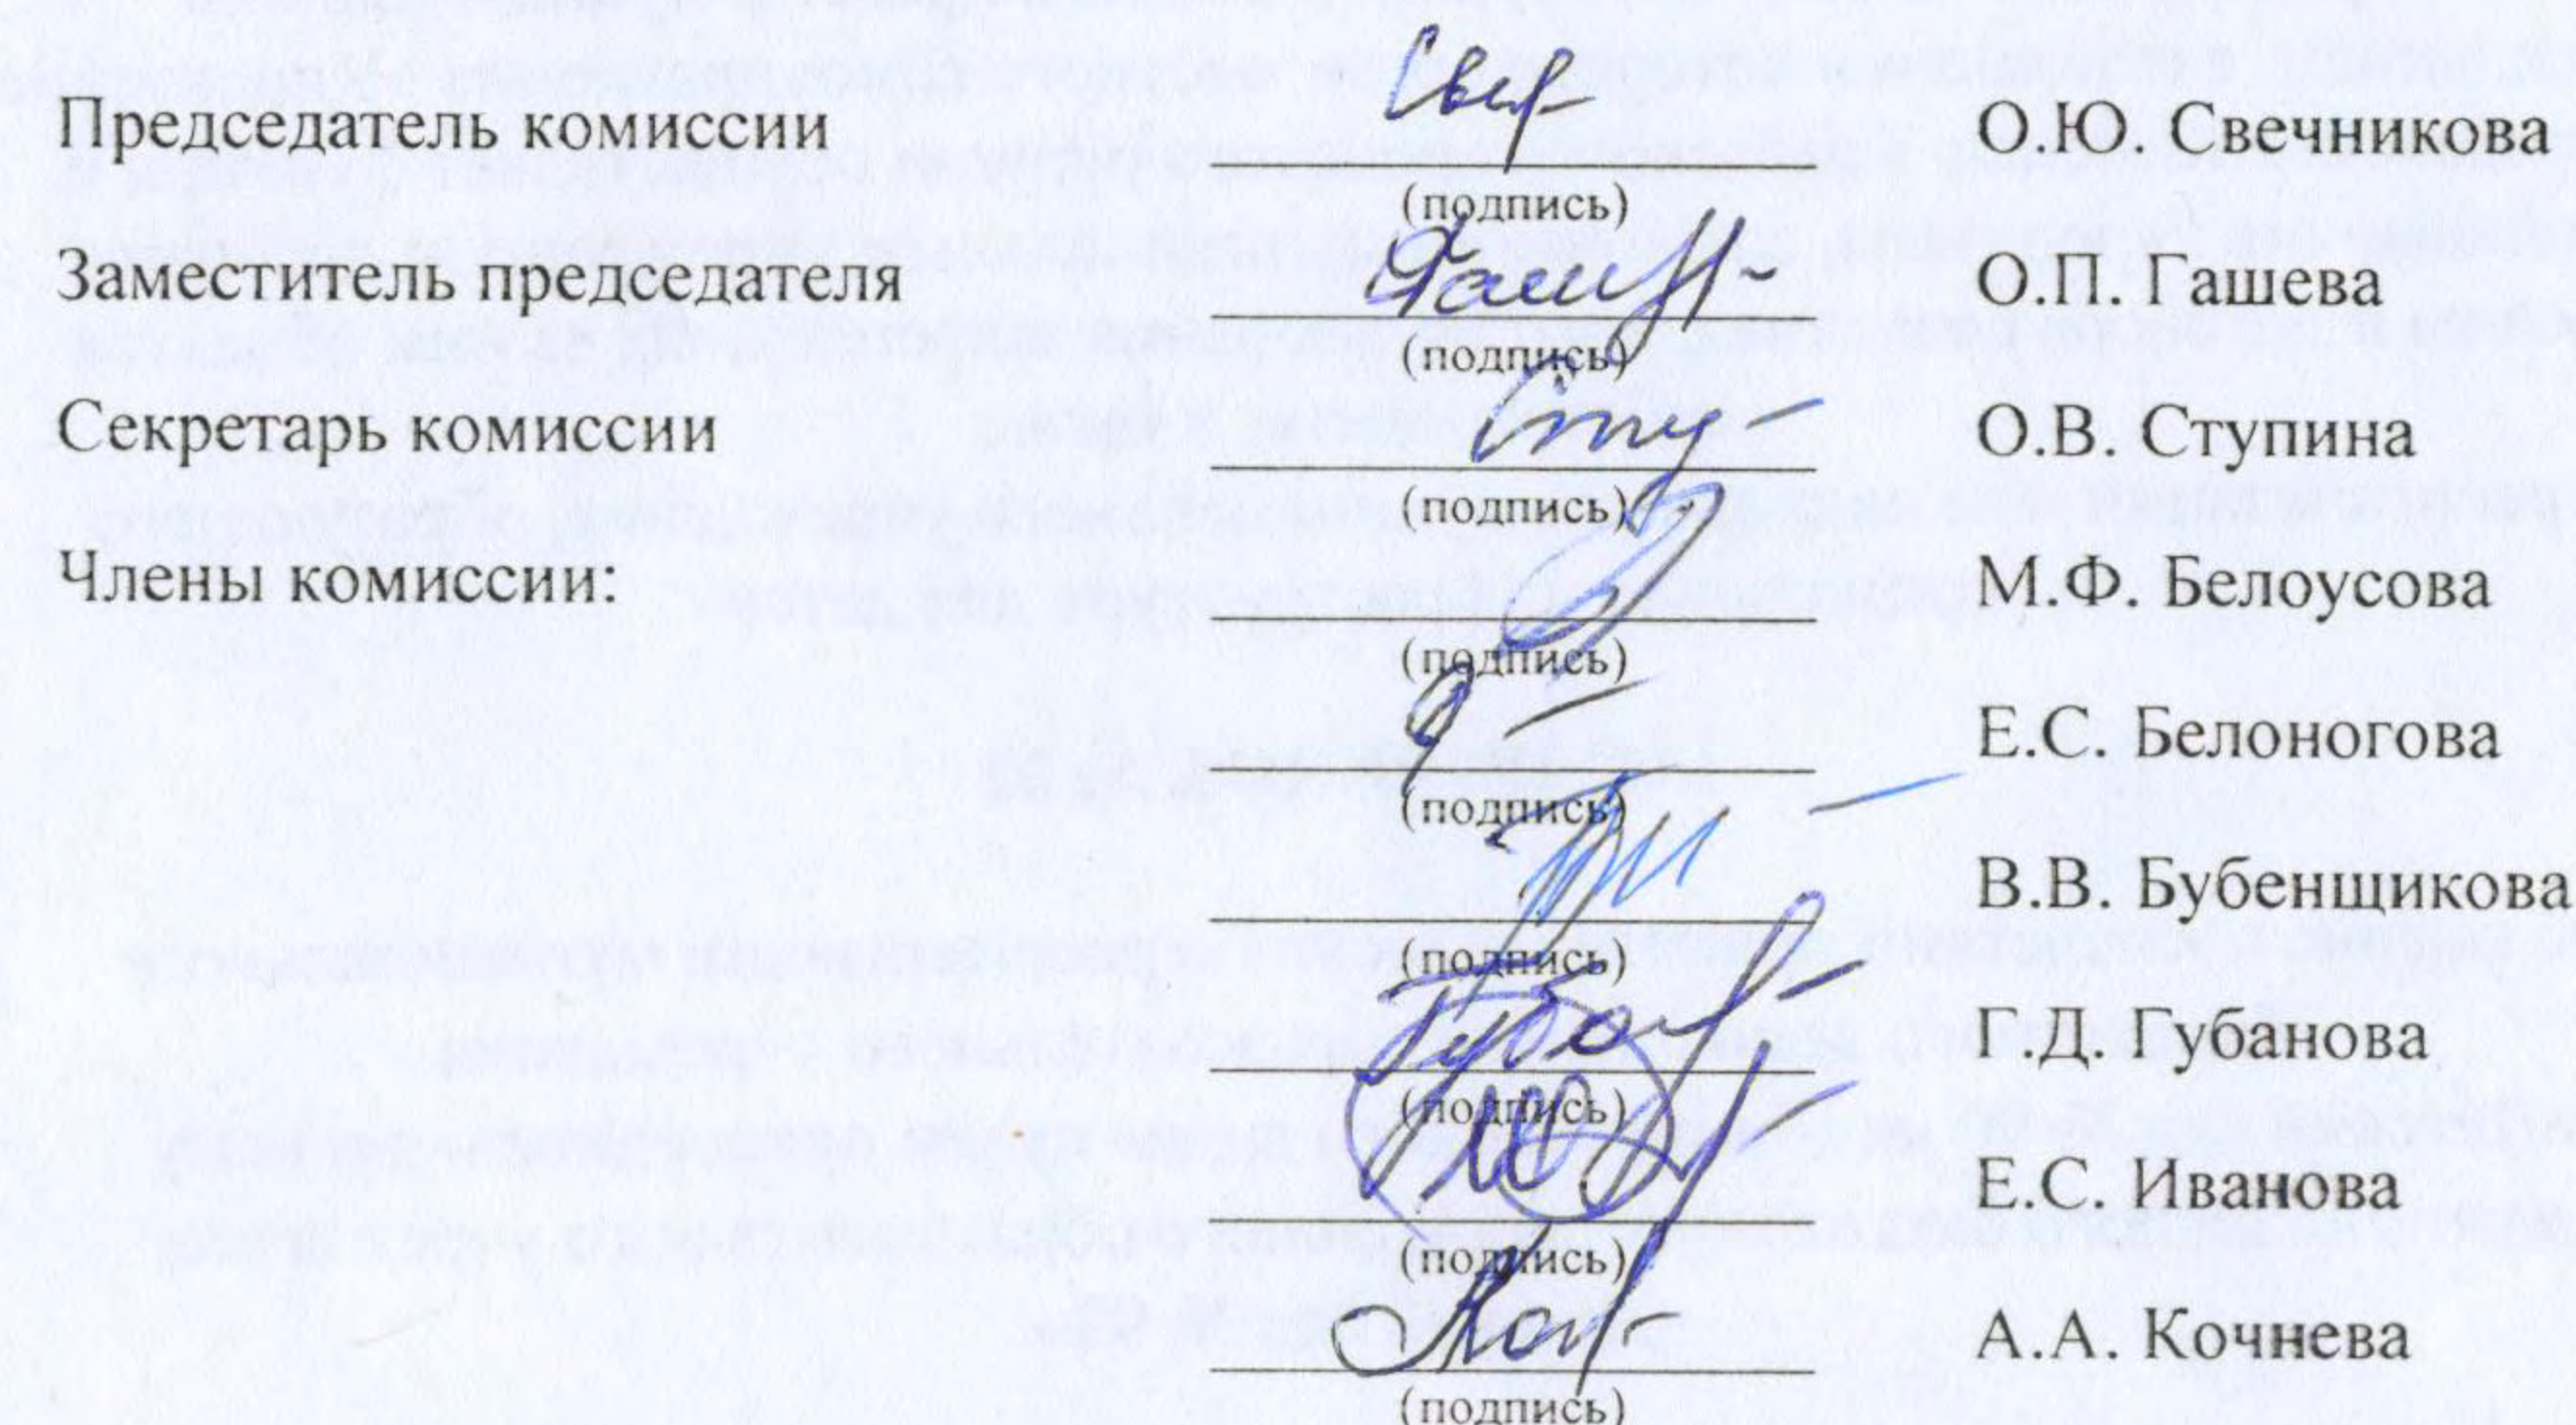 Председатель комиссии О.Ю. Свечникова
(подпись)
Заместитель председателя О.П. Гашева
(подпись)
Секретарь комиссии О.В. Ступина
(подпись)
Члены комиссии: М.Ф. Белоусова
(подпись)
Е.С. Белоногова
(подпись)
В.В. Бубенщикова
(подпись)
Г.Д. Губанова
(подпись)
Е.С. Иванова
(подпись)
А.А. Кочнева
(подпись)